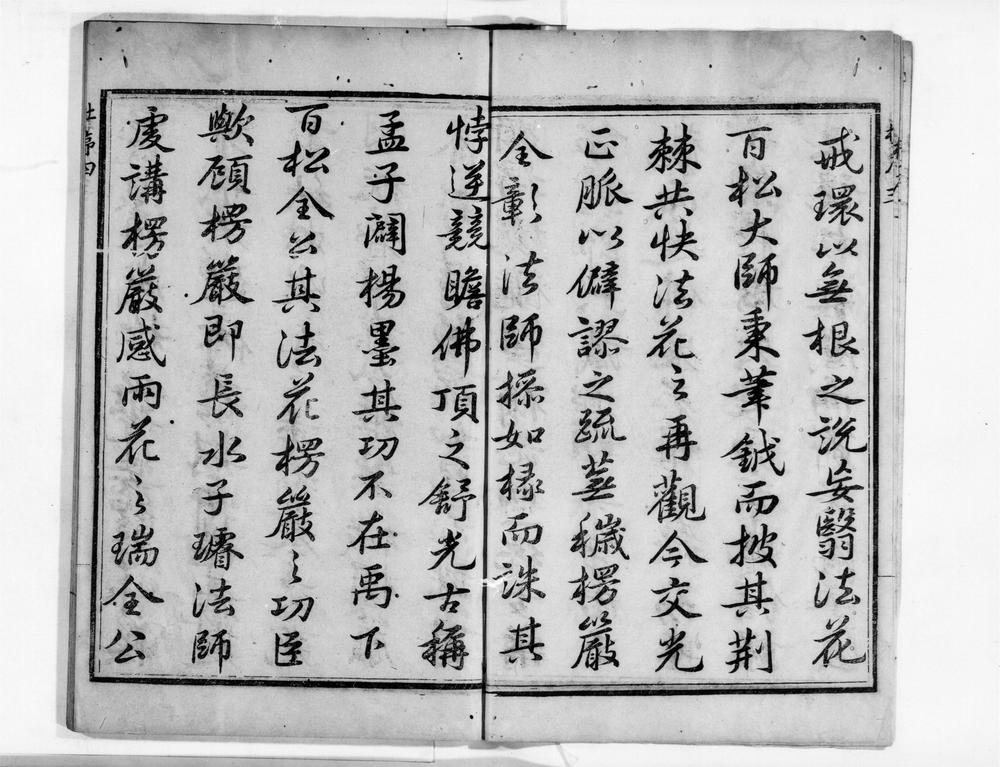 戒環以無根之説妄翳法花
百松大師秉筆鉞而披其荆
棘共快法花之再觀今交光
正脈以僻謬之疏蕪穢楞嚴
全彰法師搽如椽而誅其
悖逆競瞻佛頂之舒光古稱
孟子闢楊墨其功不在禹下
百松全公其法花楞嚴之功臣
歟顧楞嚴即長水子璿法師
處講楞嚴感雨花之瑞全公
序四